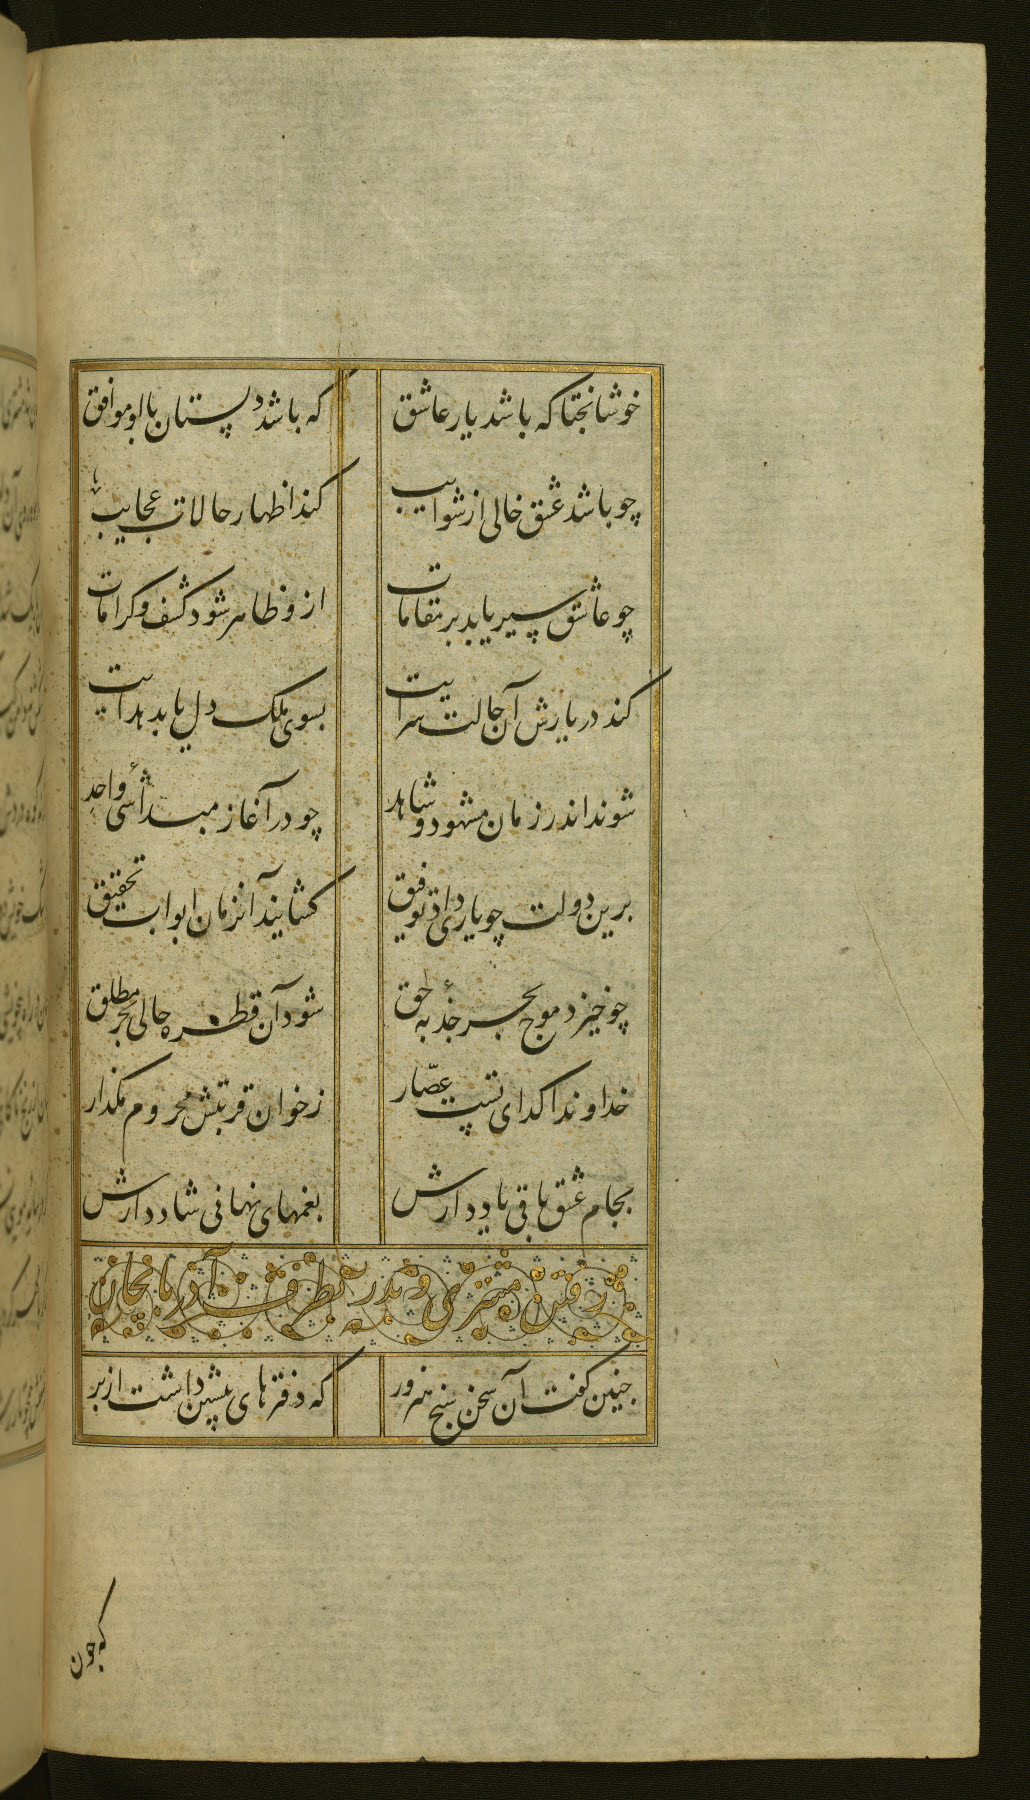 خوشا بختا که باشد یار عاشق که باشد دلستان با او موافق
چو باشد عشق خالی از شوایب کند اظهار حالات عجایب
چو عاشق سیر یابد بر مقامات ازو ظاهر شود کشف و کرامات
کند در یارش آن حالت سرایت بسوی ملک دل یابد هدایت
شوند اندر زمان مشهود و شاهد چو در آغاز مبدأ شیٔ واحد
برین دولت چو یاری داد توفیق کشایند آنزمان ابواب تحقیق
چو خیزد موج بحر جذبهٔ حق شود آن قطره حالی بحر مطلق
خداوندا کدای تست عصّار ز خوان قربتش محروم مگذار
بجام عشق باقی یاد دارش بغمهای نهانی شاد دارش
رفتن مشتری و بدر بطرف آذربایجان
چنین کفت آن سخن سنج هنرور که دفترهای پیشین داشت از بر
که چون